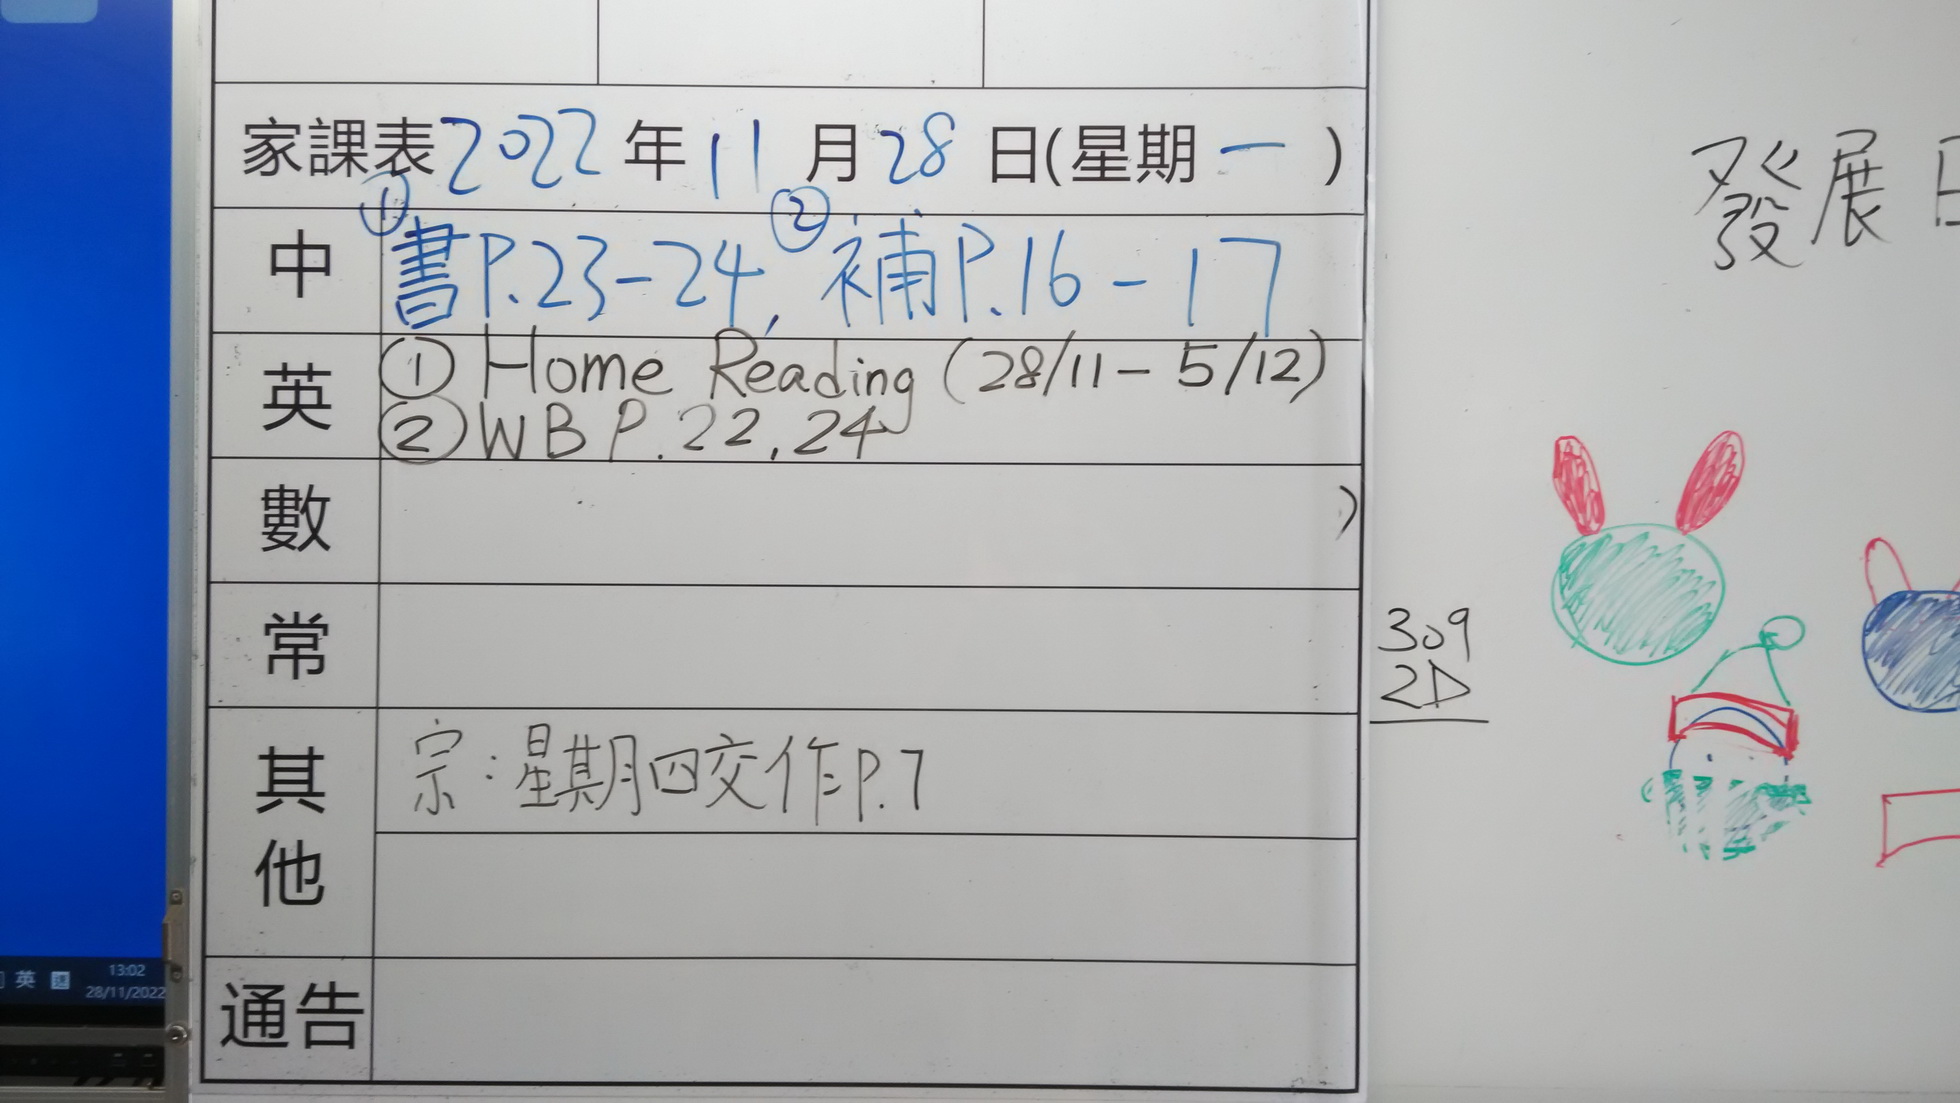 家課表2022年11月28日(星期一)
中 ①書P.23-24, ②補P.16-17
英 ① Home Reading (28/11-5/12)
② WB P.22,24
數 )
常
其他 宗:星期四交作P.7
通告
發展日
309
2D
英
13:02
28/11/2022